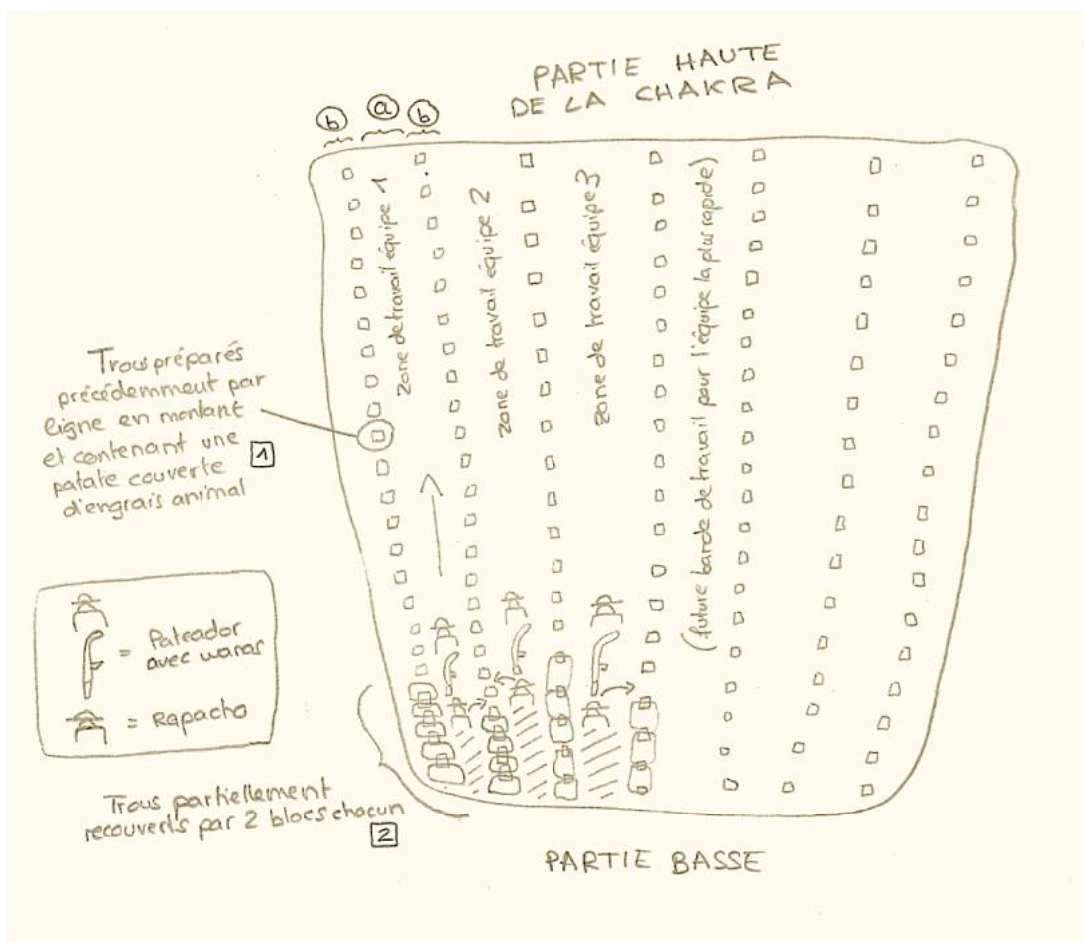 PARTIE HAUTE
DE LA CHAKRA
b
a
b
zone de travail équipe 1
zone de travail équipe 2
zone de travail équipe 3
(future bande de travail pour l'équipe la plus rapide)
Trous préparés
précédemment par
ligne en montant
et contenant une
patate couverte
d'engrais animal
1
= Pateador
avec waras
= Rapacho
Trous partiellement
recouverts par 2 blocs chacun
2
PARTIE BASSE